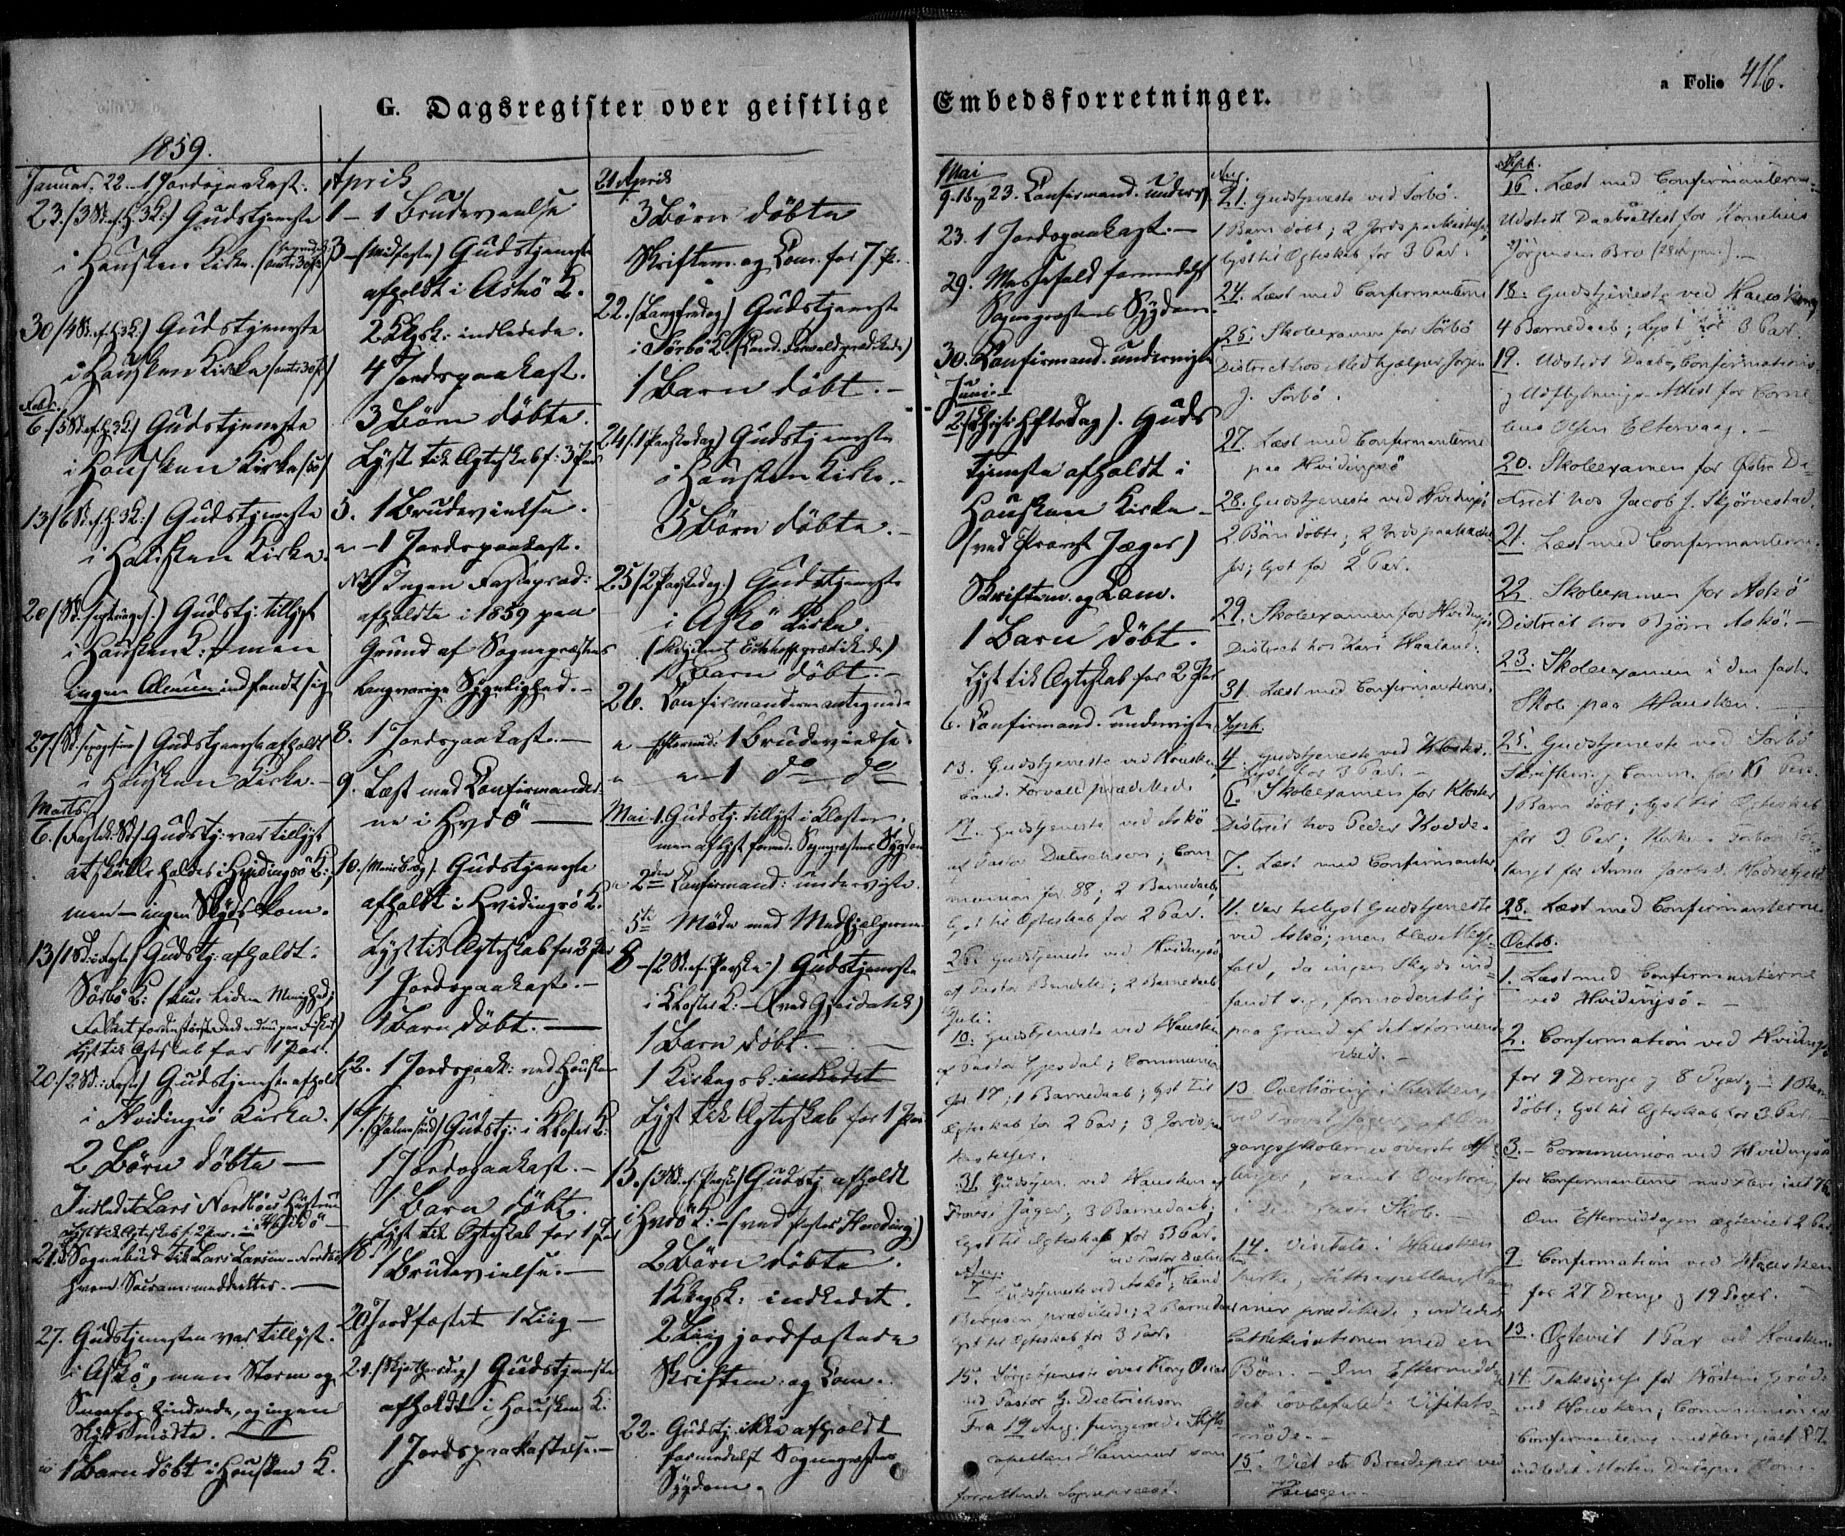 G. Dagsregister over geistlige Embedsforretninger.
a Folio 416.
1859.
Januar. 22. 1 Jordspaakast.
23. (3 S. e. H. 3 K.) Gudstjeneste
i Hausken Kirke.
30 (4 S. e. H. 3 K.) Gudstjeneste
i Hausken Kirke
Febr.
6. (5 S. e. H. 3 K.) Gudstjeneste
i Hausken Kirke
13 (6 S. e. H. 3 K.) Gudstjeneste
i Hausken Kirke.
20 Gudstj. tillyst
i Hausken K: men
ingen Almue indfandt sig
27. Gudstjeneste afholdt
i Hausken Kirke.
Marts.
6. Gudstj. var tillyst
at skulle holdes i Hvidingsö K:,
men ingen Skyds kom.
13 (1 S. i Faste) Gudstj. afholdt.
Sörbö K: liden Menighed;
Lyst til Ægteskab for 1 Par.
20. (2 S. i Faste) Gudstjeneste afholdt
i Hvidingsö Kirke.
2 Börn döbte
Indledet Lars Nordböes Hustru
Lyst til Ægteskab f. 2 Par.
21. Sognebud til Lars Larsen Nordbö
hvem Sacram: meddeltes.
27. Gudstjenesten var tillyst
i Askö, men Storm og
Snefog hindrede, og ingen
Skyds mödte.
1 Barn döbt i Hausken K.
April
1 - 1 Brudevielse
3 - (Midfaste) Gudstjeneste
afholdt i Askö K.
2 indledede.
4 Jordspaakast.
3 Börn döbte.
Lyst til Ægteskab f: 3 Par
5. 1 Brudevielse.
1 Jordspaakast.
NB Ingen Fastepræd:
afholdte i 1859 paa
Grund af Sognepræstens
langvarige Sygelighed.
8. 1 Jordspaakast.
9. Læst med Confirmander-
ne i HvdÖ
10. (Mariæ B.dag) Gudstjeneste
afholdt i Hvidingsö K.
Lyst til Ægteskab for 2 Par
1 Jordspaakast.
1 Barn döbt.
12. 1 Jordspaak: ved Hausken
17. (Palmesönd.) Gudstj: i Kloster K:
1 Jordspaakast.
1 Barn döbt.
Lyst til Ægteskab for 1 Par
18. 1 Brudevielse.
20 Jordfæstet 1 Liig
21. (Skjærthorsdag) Gudstjeneste
afholdt i Hausken K:
1 Jordspaakastelse.
21 April
3 Börn döbte
Skriftem. og Com. for 7 P.
22. (Langfredag) Gudstjeneste
i Sörbö K. (Cand. Torvald prædikede)
1 Barn döbt.
24. (1 Paaskedag) Gudstjeneste
i Hausken Kirke.
5 Börn döbte.
25 (2 Paaskedag.) Gudstjeneste
i Askö Kirke.
1 Barn döbt.
26. Confirmanterne antegnede
Eftermid: 1 Brudevielse.
1 do do
Mai 1. Gudstj: tillyst i Kloster,
men aflyst formed. Sognepræstens Sygdom
2den Confirmand: undervist.
5te Möde med Medhjælperne
8 - (2 S. ef. Paaske) Gudstjeneste
i Kloster K: (ved Gjesdahl)
1 Barn döbt.
1 Kirkegsk: indledet
Lyst til Ægteskab for 1 Par
15. (3 S. ef. Paaske) Gudstj. afholdt
i Hvdö K:
2 Börn döbte.
1 indledet.
2 Liig jordfæstede
Skriftem. og Com.
22. Gudstj. ikke afholdt
formedelst Sognepræstens
Sygdom.
Mai
9. 16 og 23. Confirmand. underv.
23. 1 Jordspaakast.
29. Messefald formedelst
Sognepræstens Sygdom.
30. Confirmand. undervist
Juni
2 (Christi Hftsdag). Guds
tjeneste afholdt i
Hausken Kirke
(ved Provst Jæger)
Skriftem. og Com.
1 Barn döbt.
Lyst til Ægteskab for 2 Par
6. Confirmand. undervist.
13. Gudstjeneste ved Hausken
Cand. Torvald prædikede.
17. Gudstjeneste ved Askö
af Pastor Dietrichson; Com-
munion for 88; 2 Barnedaab;
lyst til Ægteskab for 2 Par.
26. Gudstjeneste ved Hvidingsö
af Pastor; 2 Barnedaab
Juli.
10. Gudstjeneste ved Hausken
af Pastor Gjesdal; Communion
for 17; 1 Barnedaab; lyst til
Ægteskab for 2 Par; 3 Jordspaa
kastelser.
31. Gudstjen. ved Hausken af
Provst Jäger; 3 Barnedaab;
lyst til Ægteskab for 3 Par.
Aug.
7. Gudstjeneste ved Askö; Cand
prædikede; 2 Barnedaab
lyst til Ægteskab for 3 Par.
15. Sörgetjeneste over Kong Oscar
ved Pastor G. Dietrichson
Fra 19 Aug. fungerede Stifts
capellan Hammer som
forrettende Sognepræst.
Aug.
21. Gudstjeneste ved Sörbö.
1 Barn döbt; 2 Jordspaakastelser;
lyst til Ægteskab for 3 Par.
24. Læst med Confirmanterne
25. Skoleexamen for Sörbö
District hos Medhjælper Jörgen
J. Sörbö.
27. Læst med Confirmanterne
paa Hvidingsö
28. Gudstjeneste ved Hvidingsö
2 Börn döbte; 2 Jordspaakastel
ser; lyst for 2 Par.
29. Skoleexamen for Hvidingsö
District hos Lars Haaland.
31. Læst med Confirmanterne.
Septb.
4. Gudstjeneste ved Kloster,
lyst for 3 Par.
6. Skoleexamen for Kloster
District hos Peder Hodde.
7. Læst med Confirmanter
11. Var tillyst Gudstjeneste
ved Askö; men blev Messe-
fald, da ingen Skyds ind-
fandt sig, formodentlig
paa Grund af det stormende
Veir.
13. Overhöring i Hausken,
ved Provst Jäger, af Om-
gangsskolernes överste Af-
delinger, samt Overhöring
i den faste Skole.
14. Visitats i Hausken
Kirke, Stiftscapellan Ham
mer prædikede, indledede
Catechisationen med en
Bön. - Om Eftermidda
det lovbefalede Visitats-
möde.
15. Viet et Brudepar ved
Hausken.
Septb.
16. Læst med Confirmanterne
Udstedt Daabsattest for Kornelius
Jörgensen Bru
18. Gudstjeneste ved Hausken
4 Barnedaab; Lyst for 3 Par.
19. Udstedt Daabs, Confirmations
og Udflytnings Attest for Corne
lius Olsen Eltervaag.
20. Skoleexamen for Östre Di-
strict hos Jacob J. Skjörvestad.
21. Læst med Confirmanterne.
22. Skoleexamen for Askö
District hos Björn Askö.
23. Skoleexamen i den faste
Skole paa Hausken.
25. Gudstjeneste ved Sörbö
Skriftem. og Comm. for 16 Pers.
1 Barn döbt; lyst til Ægteskab
for 3 Par;
28. Læst med Confirmanterne
Octob.
1. Læst med Confirmanterne
ved Hvidingsö.
2. Confirmation ved Hvidingsö
for 9 Drenge og 8 Piger; 1 Barn
döbt; lyst til Ægteskab for 3 Par.
3. Communion ved Hvidingsö
for Confirmanterne med flere, ialt 76
Om Eftermiddagen ægteviet 2 Par.
9. Confirmation ved Hausken
for 27 Drenge og 19 Piger.
13. Ægteviet 1 Par ved Hausken.
14. Taksigelse for Höstens Gröde
ved Hausken; Communion for
Confirmanterne med flere, ialt 87.
indledet Morten